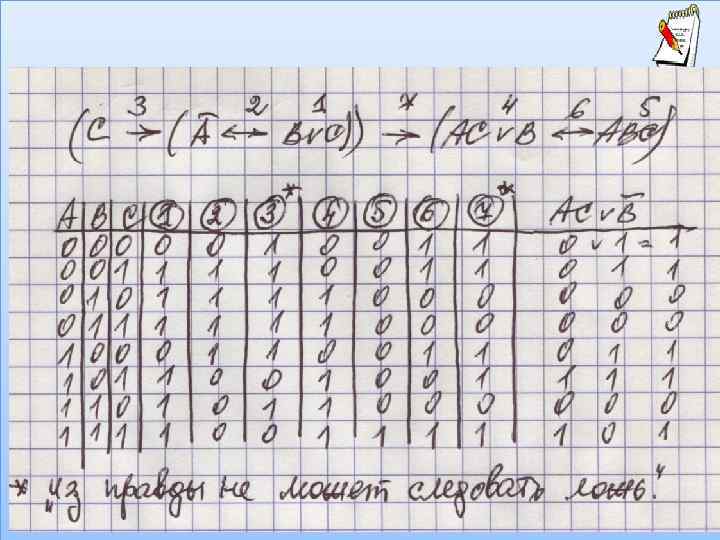 3 2 1 * 4 6 5
(C → (Ā ↔ BvC)) → (ACvB ↔ ABC)
A B C ① ② ③* ④ ⑤ ⑥ ⑦* ACvB̄
0 0 0 0 0 1 0 0 1 1 0 v 1 = 1
0 0 1 1 1 1 0 0 1 1 0 1 1
0 1 0 1 1 1 1 0 0 0 0 0 0
0 1 1 1 1 1 1 0 0 0 0 0 0
1 0 0 0 1 1 0 0 1 1 0 1 1
1 0 1 1 0 0 1 0 0 1 1 1 1
1 1 0 1 0 1 1 0 0 0 0 0 0
1 1 1 1 0 0 1 1 1 1 1 0 1
* "из правды не может следовать ложь."